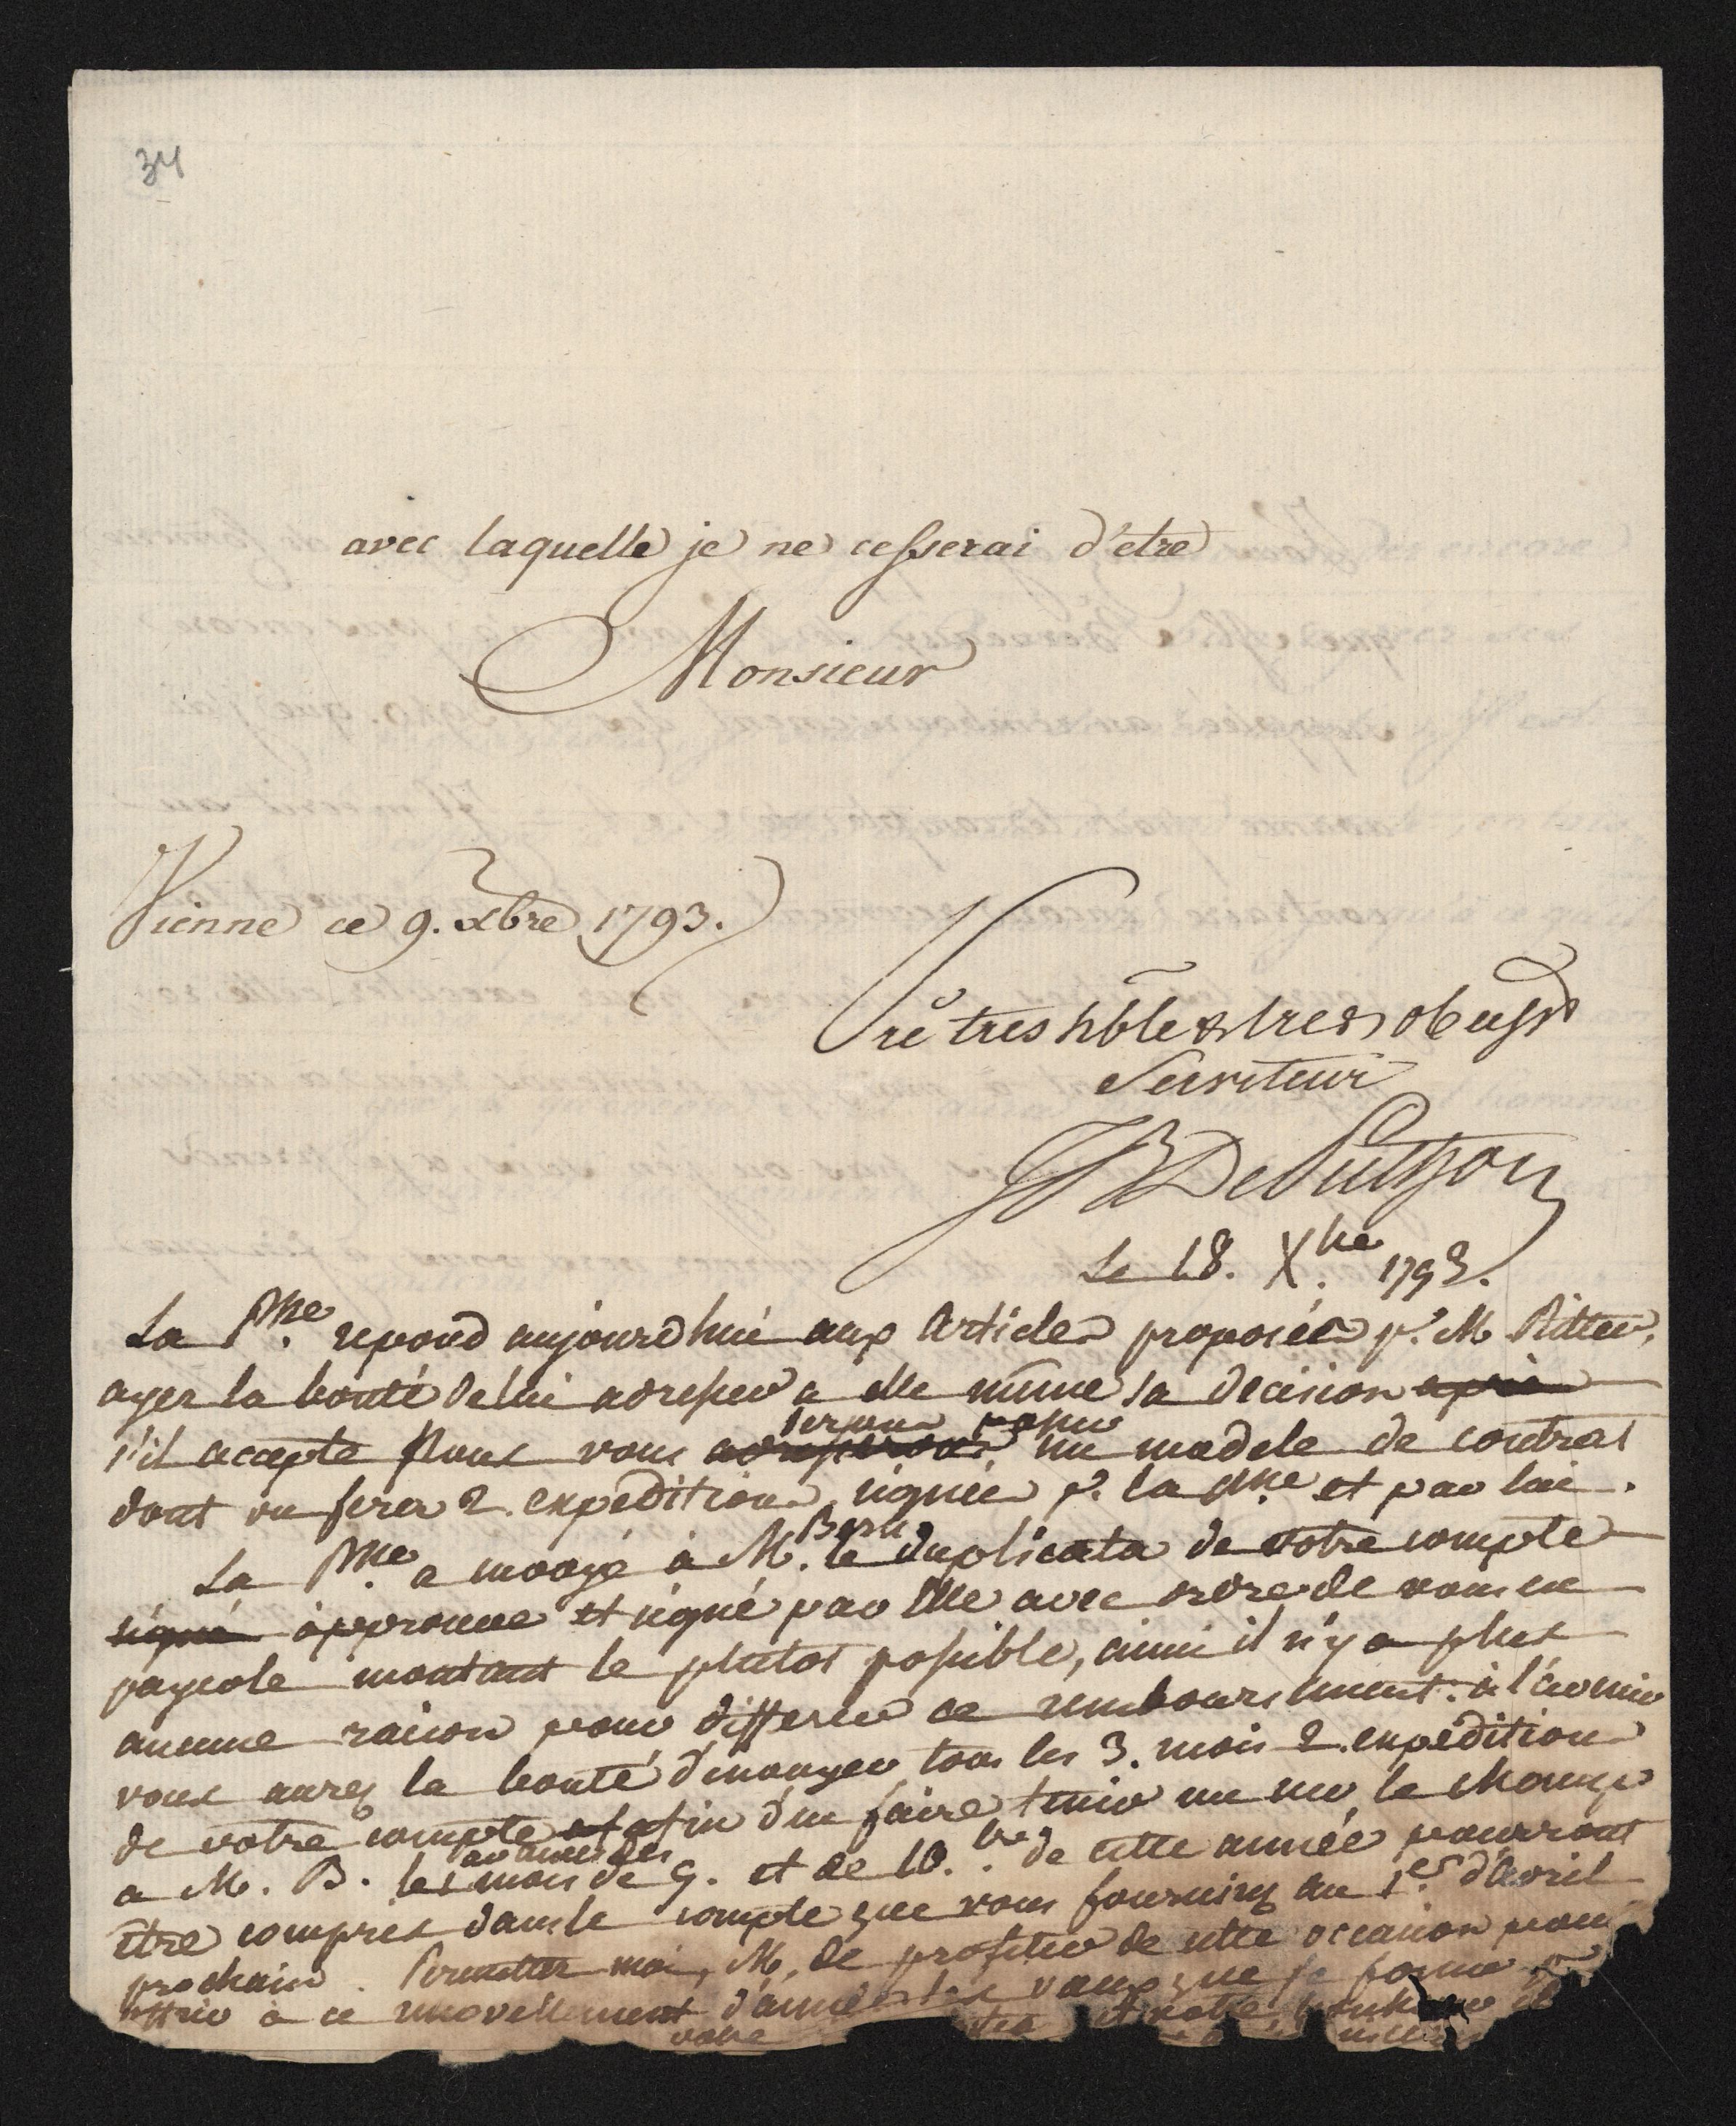 34
avec laquelle je ne cesserai d'etre
Monsieur
Vienne ce 9. xbre 1793.
Vre tres hble & tres obeisst
Serviteur
JB De Puthon
Le 18. Xbre 1793.
La Pme repond aujourdhui aux Articles proposés p. M Ritter,
ayez la bonté de lui adresser a elle même sa decision après
s'il accepte nous vous un modele de contrat
dont on fera 2. expeditions signées p. la Pme et par lui.
La Pme a envoyé à M. B le duplicata de votre compte
signé approuve et signé par Elle avec ordre de vous en
payer le montant le plutot possible, ainsi il n'y a plus
aucune raison pour differer ce remboursement. à l'avenir
vous aurez la bonté d'envoyer tous les 3. mois 2. expeditions
de votre compte afin d'en faire tenir une sur le champ
a M. B. les mois de 9. et de 10.bre de cette année pourront
être compris dans le compte que vous fournirez au 1er d'Avril
prochain. Permettez moi, M, de profiter de cette occasion pour
offrir à ce renouvellement d'année les vœux que je forme pr
votre